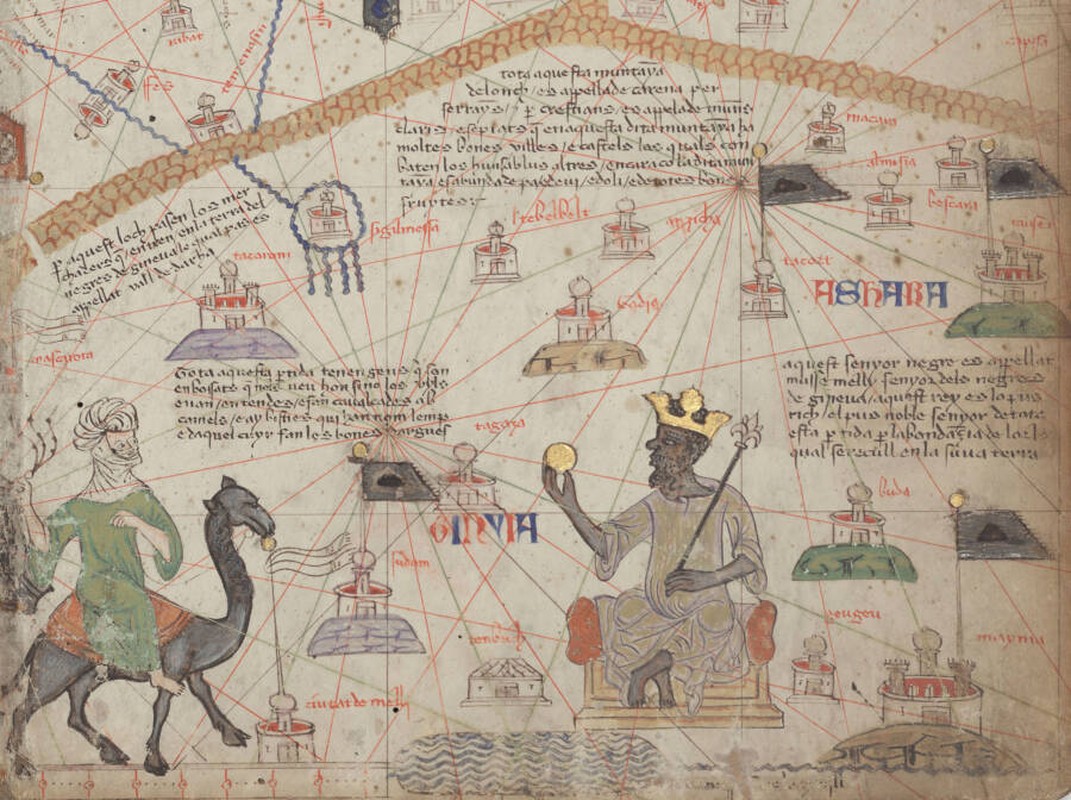 ribat
ffes
tota aquesta muntaya
de lonch / es appellade carena per
serrayns / & p crestians / es appelade muntis
claris / e sepiats q̄ en aquesta dita muntaya ha
moltes bones villes / e castels los quals con
baten los huns ab lus altres / encara co la dita mun
taya es abunda de pa e de vi / e doli / e de totes bones
fruytes:-
macara
almisia
bescara
P aquest loch pasen los mer
chaders q̄ / entren en la terra del
negres de gineua lo qual pas es
appellat vall de darha
sigilmessa
tebelbelt
anzicha
tacort
tacorom
ASHARA
Tota aquesta ptida tenen gens q̄ son
enbossats q̄ nols veu hon sino los vyls
e van / en tendes / e fan caualcades ab
camels / e ay bisties qui han nom lemp
e da quel cuyr fan les bones dargues
aquest senyor negre es appellat
musse melly / senyor dels negres
de gineua / aquest rey es lo pus
rich / el pus noble senyor de tota
esta ptida p labondançia de lor lo
qual se recull en la suua terra
tagaza
buda
GINYIA
sudam
tenbuch
mayma
ciutat de melli